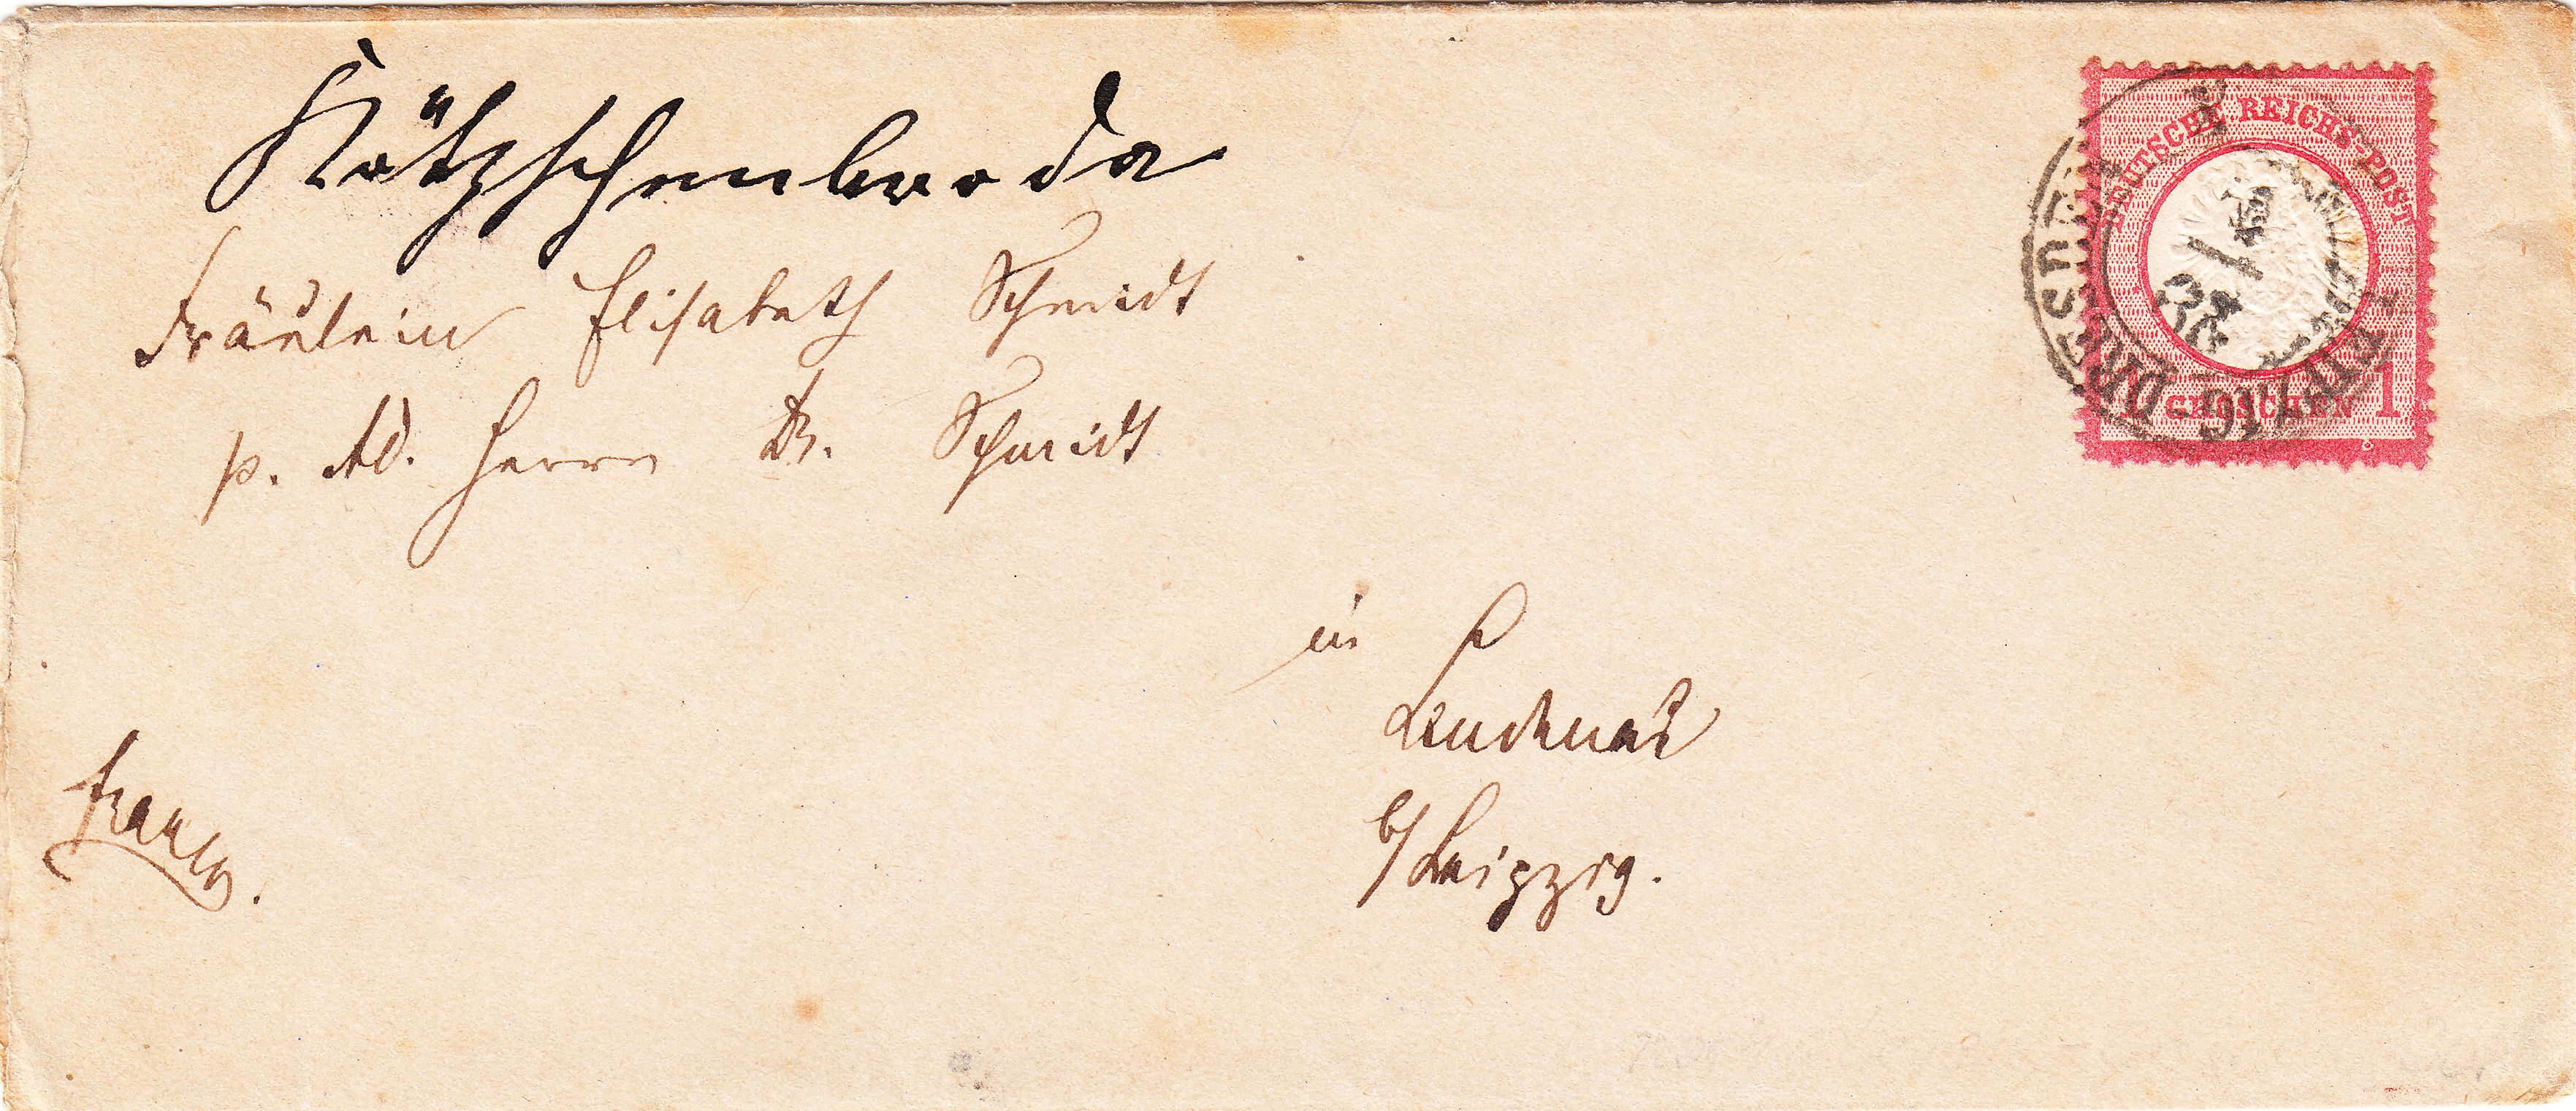 Kötzschenbroda
Fräulein Elisabeth Schmidt
p. Ad. Herrn Dr. Schmidt
in
Lindenau
b/Leipzig.
franco.
DEUTSCHE REICHS-POST
1 GROSCHEN 1
DRESDEN
LEIPZIG